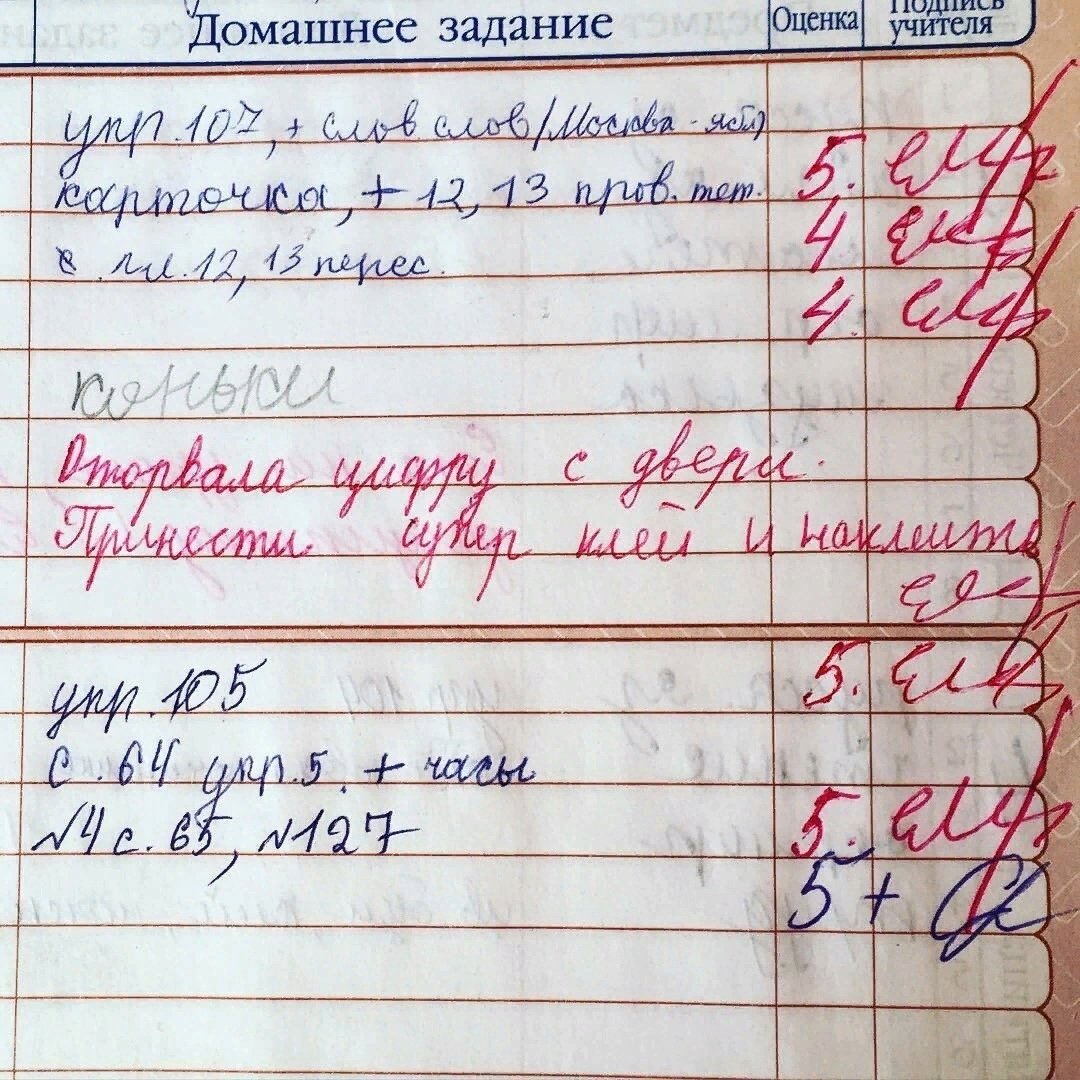 Домашнее задание
Оценка
Подпись
учителя
упр.107, + слов слов (Москва -
5.
карточка, + 12, 13 пров. тет.
4
с. 12, 13 перес.
4.
коньки
Оторвала цифру с двери.
Принести супер клей и наклеить
упр.105
5.
с.64 упр.5. + часы
№4 с.65, №127
5.
5+